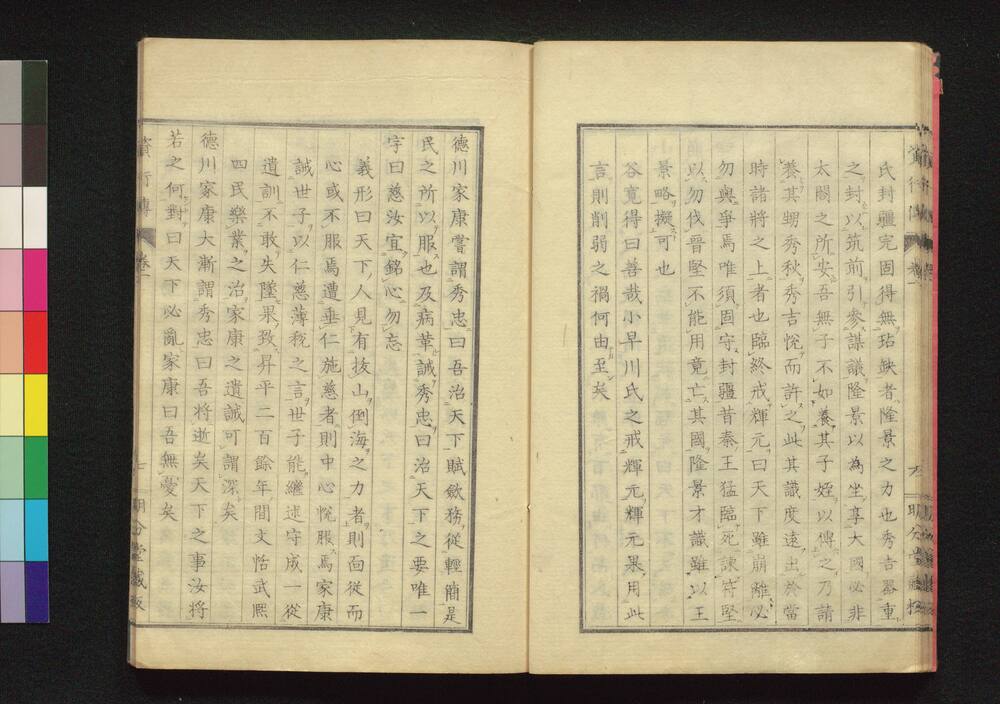 氏封疆完固得無玷缺者隆景之力也秀吉器重
之封以筑前引參謀議隆景以為坐享大國必非
太閤之所安吾無子不如養其子姪以傳之乃請
養其甥秀秋秀吉悅而許之此其識度遠出於當
時諸將之上者也臨終戒輝元曰天下雖崩離必
勿與爭焉唯須固守封疆昔秦王猛臨死諫苻堅
以勿伐晉堅不能用竟亡其國隆景才識雖以王
景略擬可也
谷寬得曰善哉小早川氏之戒輝元輝元果用此
言則削弱之禍何由至矣
德川家康嘗謂秀忠曰吾治天下賦斂務從輕簡是
民之所以服也及病革誡秀忠曰治天下之要唯一
字曰慈汝宜銘心勿忘
義形曰天下人見有拔山倒海之力者則面從而
心或不服焉遭垂仁施慈者則中心悅服焉家康
誡世子以仁慈薄稅之言世子能繼述守成一從
遺訓不敢失墜果致昇平二百餘年間文恬武熙
四民樂業之治家康之遺誡可謂深矣
德川家康大漸謂秀忠曰吾將逝矣天下之事汝將
若之何對曰天下必亂家康曰吾無憂矣
卷一
七
明分堂藏板